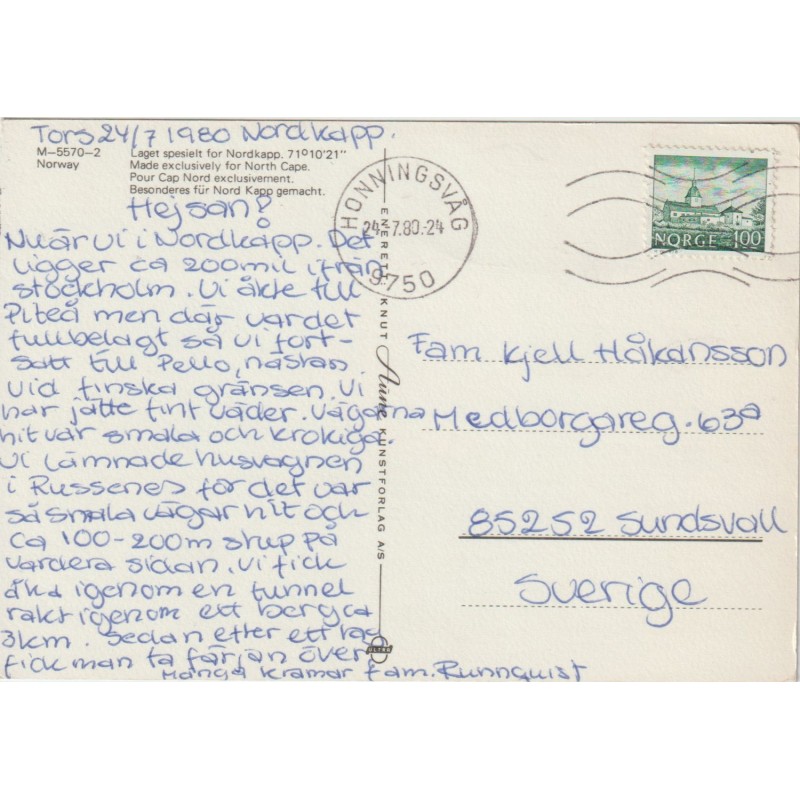 Tors 24/7 1980 Nordkapp.
M–5570–2
Norway
Laget spesielt for Nordkapp. 71°10'21"
Made exclusively for North Cape.
Pour Cap Nord exclusivement.
Besonderes für Nord Kapp gemacht.
Hejsan!
Nu är vi i Nordkapp. Det
ligger ca 200mil ifrån
stockholm. Vi åkte till
Piteå men där var det
fullbelagt så vi fort-
satt till Pello, nästan
vid finska gränsen. Vi
har jätte fint väder. Vägarna
hit var smala och krokiga.
Vi lämnade husvagnen
i Russenes för det var
så smala vägar hit och
ca 100-200m stup på
vardera sidan. Vi fick
åka igenom en tunnel
rakt igenom ett berg ca
3km. Sedan efter ett tag
fick man ta färjan över.
Många kramar fam. Runnquist
HONNINGSVÅG
24.-7.80.-24
9750
NORGE 100
ENERETT: KNUT Aune KUNSTFORLAG A/S
ULTRA
Fam Kjell Håkansson
Medborgareg. 63a
85252 Sundsvall
Sverige